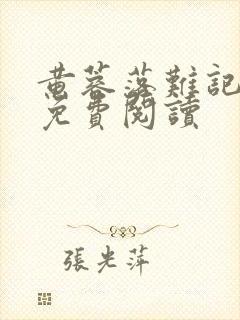 黄蓉落難記
免費閱讀
張光萍